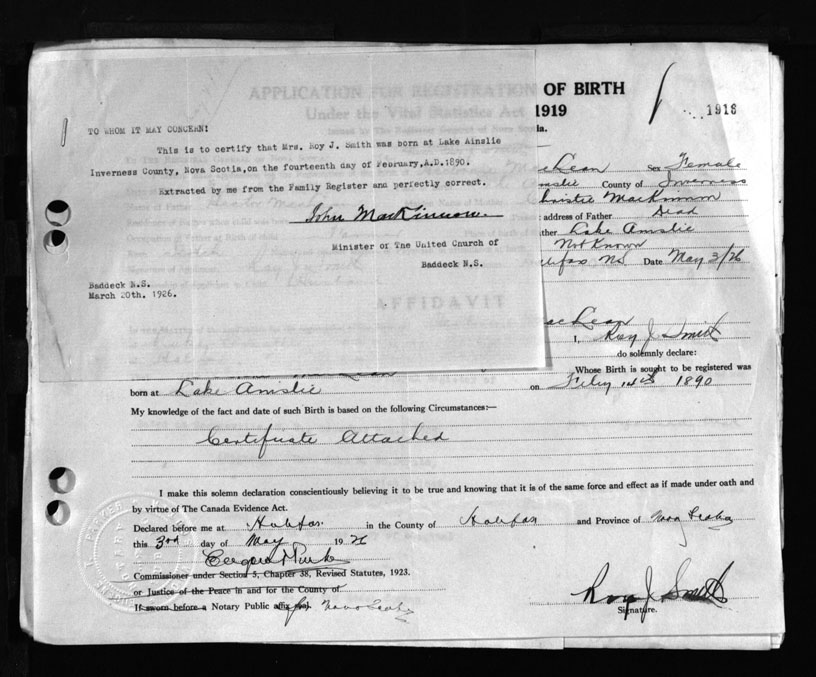 APPLICATION FOR REGISTRATION OF BIRTH
Under the Vital Statistics Act 1919
1918
TO WHOM IT MAY CONCERN!
This is to certify that Mrs. Roy J. Smith was born at Lake Ainslie
Inverness County, Nova Scotia,on the fourteenth day of February,A.D.1890.
Extracted by me from the Family Register and perfectly correct.
John MacKinnon
Minister of The United Church of
Baddeck N.S.
Baddeck N.S.
March 20th. 1926.
Lean Sex Female
Ainslie County of Inverness
Christie MacKinnon
address of Father Dead
Lake Ainslie
Not Known
Halifax NS Date May 3/26
AFFIDAVIT
MacLean
I, Roy J Smith
do solemnly declare:
Whose Birth is sought to be registered was
born at Lake Ainslie on Feby 14th 1890
My knowledge of the fact and date of such Birth is based on the following Circumstances:—
Certificate Attached
I make this solemn declaration conscientiously believing it to be true and knowing that it is of the same force and effect as if made under oath and
by virtue of The Canada Evidence Act.
Declared before me at Halifax in the County of Halifax and Province of Nova Scotia
this 3rd day of May 1926
Commissioner under Section 5, Chapter 38, Revised Statutes, 1923.
or Justice of the Peace in and for the County of
If sworn before a Notary Public affix for Nova Scotia
Roy J Smith
Signature.